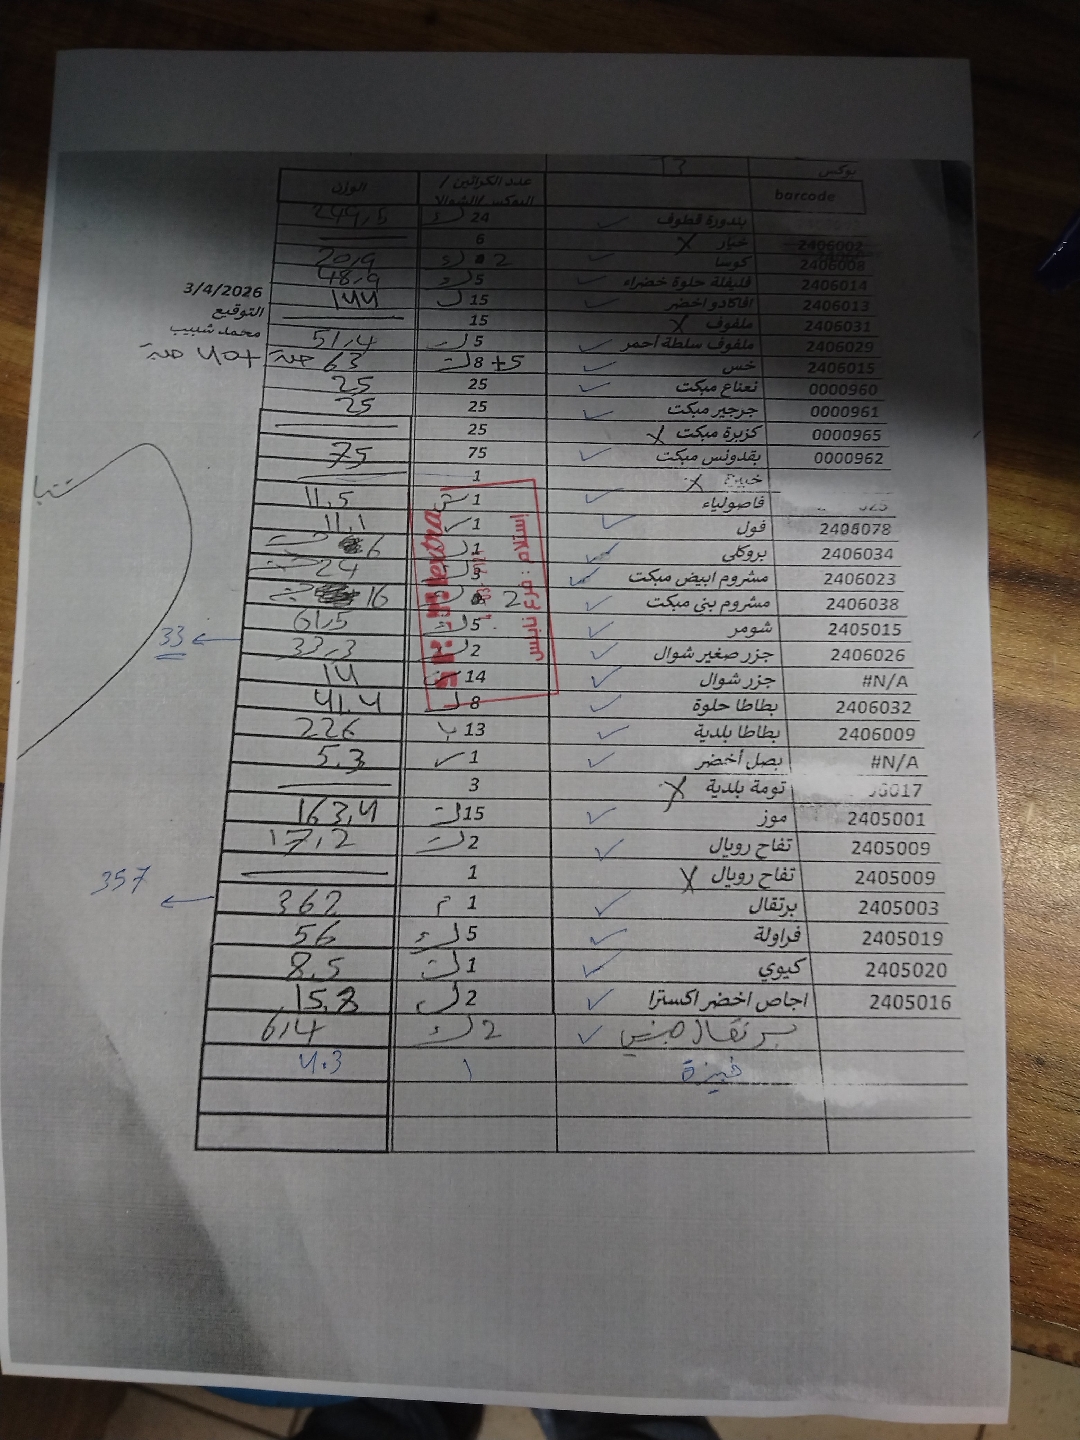 بوكس 13
barcode عدد الكراتين / البوكس/الشوالا الوزن
بندورة قطوف 24 244,5
2406002 خيار X 6
2406008 كوسا 2 20,9
2406014 فليفلة حلوة خضراء 5 48,9
2406013 افاكادو اخضر 15 144
2406031 ملفوف X 15
2406029 ملفوف سلطة احمر 5 51,4
2406015 خس 8+5 63
0000960 نعناع مبكت 25 25
0000961 جرجير مبكت 25 25
0000965 كزبرة مبكت X 25
0000962 بقدونس مبكت 75 75
X 1
فاصولياء 1 11,5
2406078 فول 1 11,1
2406034 بروكلي 1 6
2406023 مشروم ابيض مبكت 3 24
2406038 مشروم بني مبكت 2 16
2405015 شومر 5 61,5
2406026 جزر صغير شوال 2 33,3
#N/A جزر شوال 14
2406032 بطاطا حلوة 8 41,4
2406009 بطاطا بلدية 13 226
#N/A بصل أخضر 1 5,3
تومة بلدية X 3
2405001 موز 15 163,4
2405009 تفاح رويال 2 17,2
2405009 تفاح رويال X 1
2405003 برتقال 1 م 362
2405019 فراولة 5 56
2405020 كيوي 1 8,5
2405016 اجاص اخضر اكسترا 2 15,8
برتقال 2
خبيزة ١ 4.3
3/4/2026
التوقيع
محمد شبيب
33
357
إستلام : فرع نابلس
extra